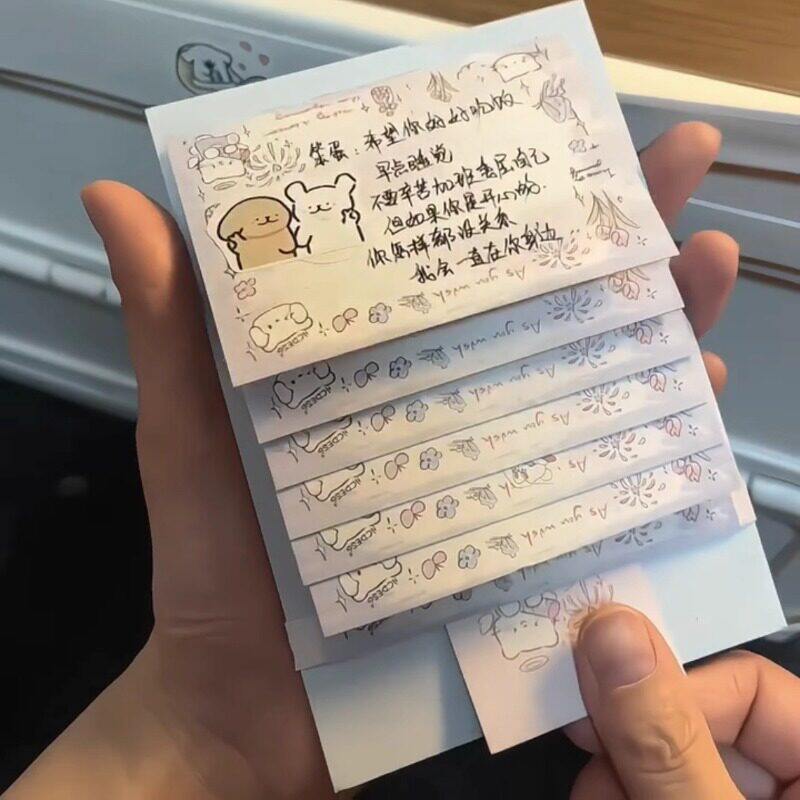 笨蛋：希望你好好吃饭
早点睡觉
不要辛苦加班委屈自己
但如果你是开心的
你怎样都没关系
我会一直在你身边
As you wish
As you wish
As you wish
As you wish
As you wish
As you wish